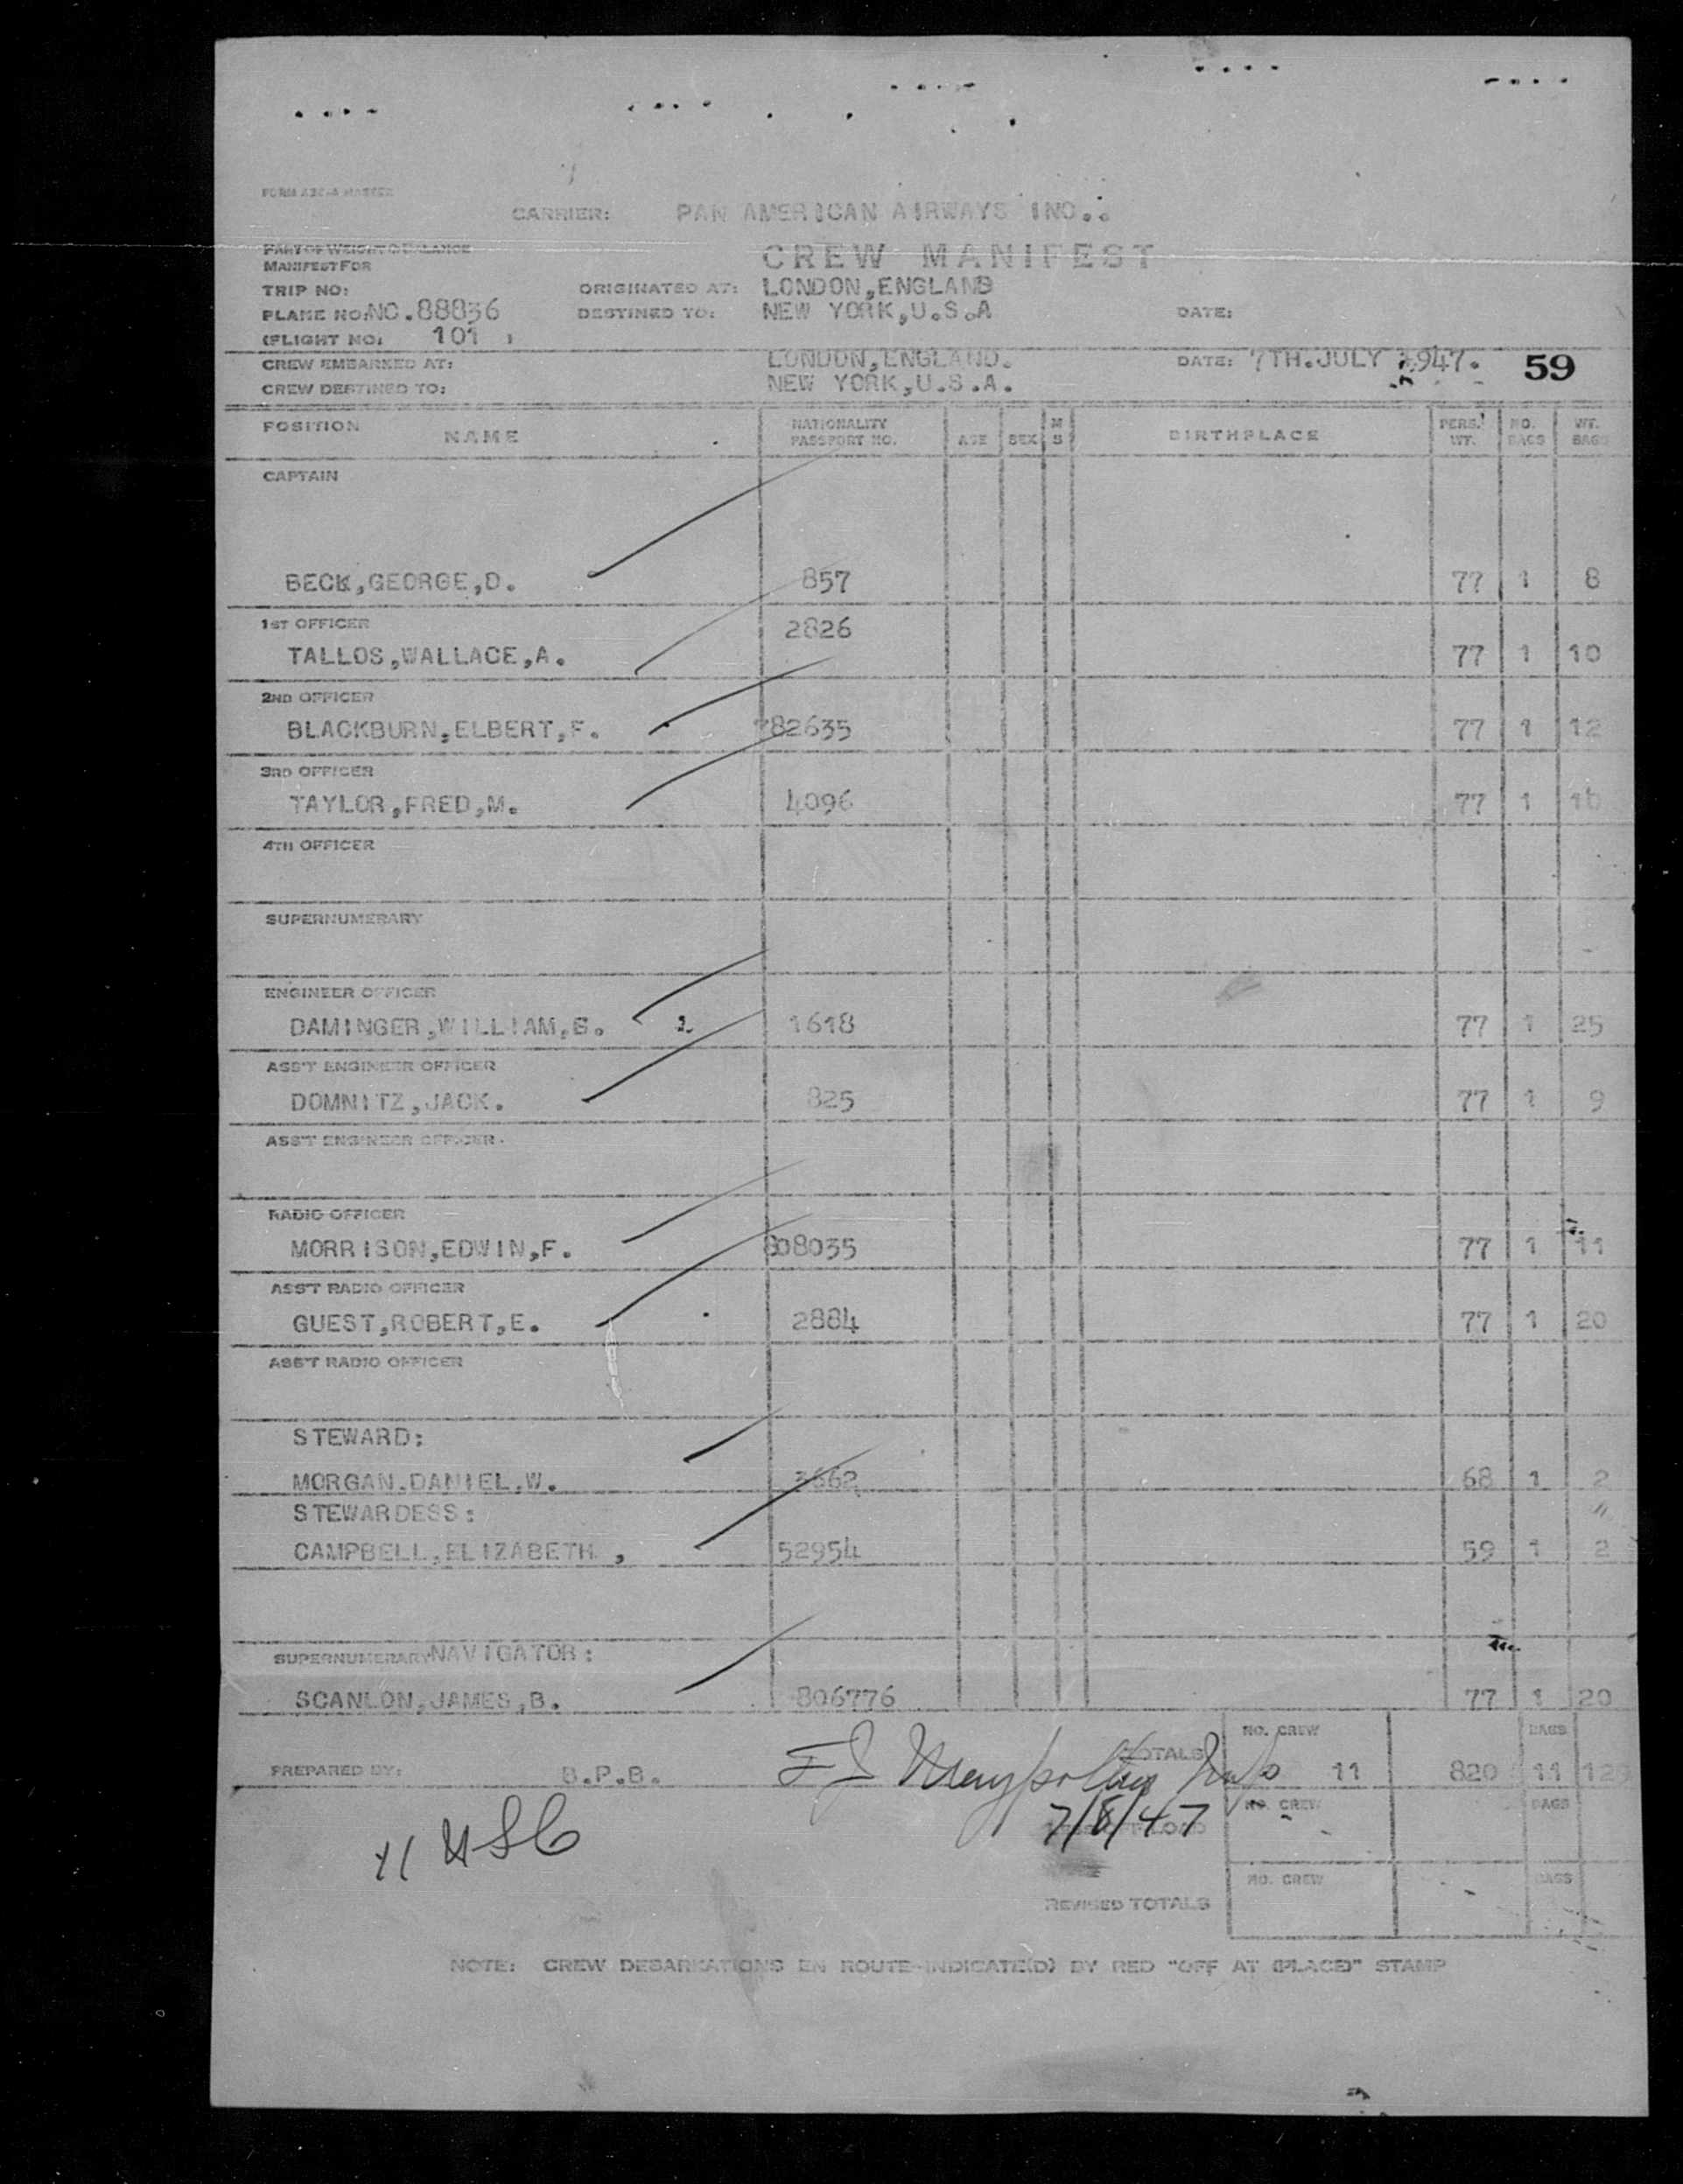 CARRIER: PAN AMERICAN AIRWAYS INC.
PART OF WEIGHT & BALANCE
MANIFEST FOR
CREW MANIFEST
TRIP NO: ORIGINATED AT: LONDON,ENGLAND
PLANE NO:NC.88836 DESTINED TO: NEW YORK,U.S.A DATE:
(FLIGHT NO: 101 )
CREW EMBARKED AT: LONDON,ENGLAND. DATE: 7TH.JULY 1947. 59
CREW DESTINED TO: NEW YORK,U.S.A.
POSITION NAME NATIONALITY PASSPORT NO. AGE SEX M S BIRTHPLACE PERS. WT. NO. BAGS WT. BAGS
CAPTAIN
BECK,GEORGE,D. 857 77 1 8
1ST OFFICER 2826
TALLOS,WALLACE,A. 77 1 10
2ND OFFICER
BLACKBURN,ELBERT,F. 782635 77 1 12
3RD OFFICER
TAYLOR,FRED,M. 4096 77 1
4TH OFFICER
SUPERNUMERARY
ENGINEER OFFICER
DAMINGER,WILLIAM, 1618 77 1 25
ASS'T ENGINEER OFFICER
DOMNITZ,JACK. 825 77 1 9
ASS'T ENGINEER OFFICER
RADIO OFFICER
MORRISON,EDWIN,F. 808035 77 1 11
ASS'T RADIO OFFICER
GUEST,ROBERT,E. 2884 77 1 20
ASS'T RADIO OFFICER
STEWARD:
MORGAN,DANIEL,W. 3662 68 1 2
STEWARDESS:
CAMPBELL,ELIZABETH , 52954 59 1 2
SUPERNUMERARY NAVIGATOR:
SCANLON,JAMES,B. 806776 77 1 20
NO. CREW BAGS
PREPARED BY: TOTALS 11 820 11
7/8/47 NO. CREW BAGS
11 USC
NO. CREW BAGS
REVISED TOTALS
NOTE: CREW DEBARKATIONS EN ROUTE INDICATE(D) BY RED "OFF AT (PLACE)" STAMP